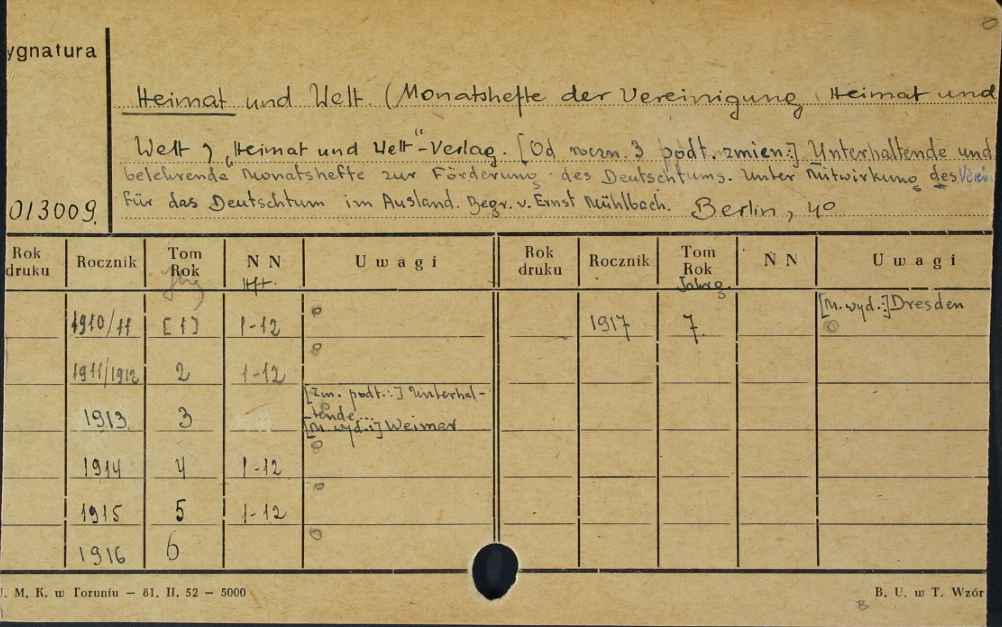 ygnatura
Heimat und Welt. (Monatshefte der Vereinigung Heimat und
Welt), "Heimat und Welt"-Verlag. [Od roczn. 3 podt. zmien:] Unterhaltende und
belehrende Monatshefte zur Förderung des Deutschtums. Unter Mitwirkung des Verein
für das Deutschtum im Ausland. Begr. v. Ernst Mühlbach. Berlin, 4o
013009.
Rok druku Rocznik Tom Rok N N U w a g i Rok druku Rocznik Tom Rok N N U w a g i
Jhrg Hft. Jahrg.
1910/11 [1] 1-12 1917 7. [M. wyd.:] Dresden
1911/1912 2 1-12
1913 3 [Zm. podt.:] Unterhal-
tende...
[M. wyd.:] Weimar
1914 4 1-12
1915 5 1-12
1916 6
U. M. K. w Toruniu — 81. II. 52 — 5000 B. U. w T. Wzór
B